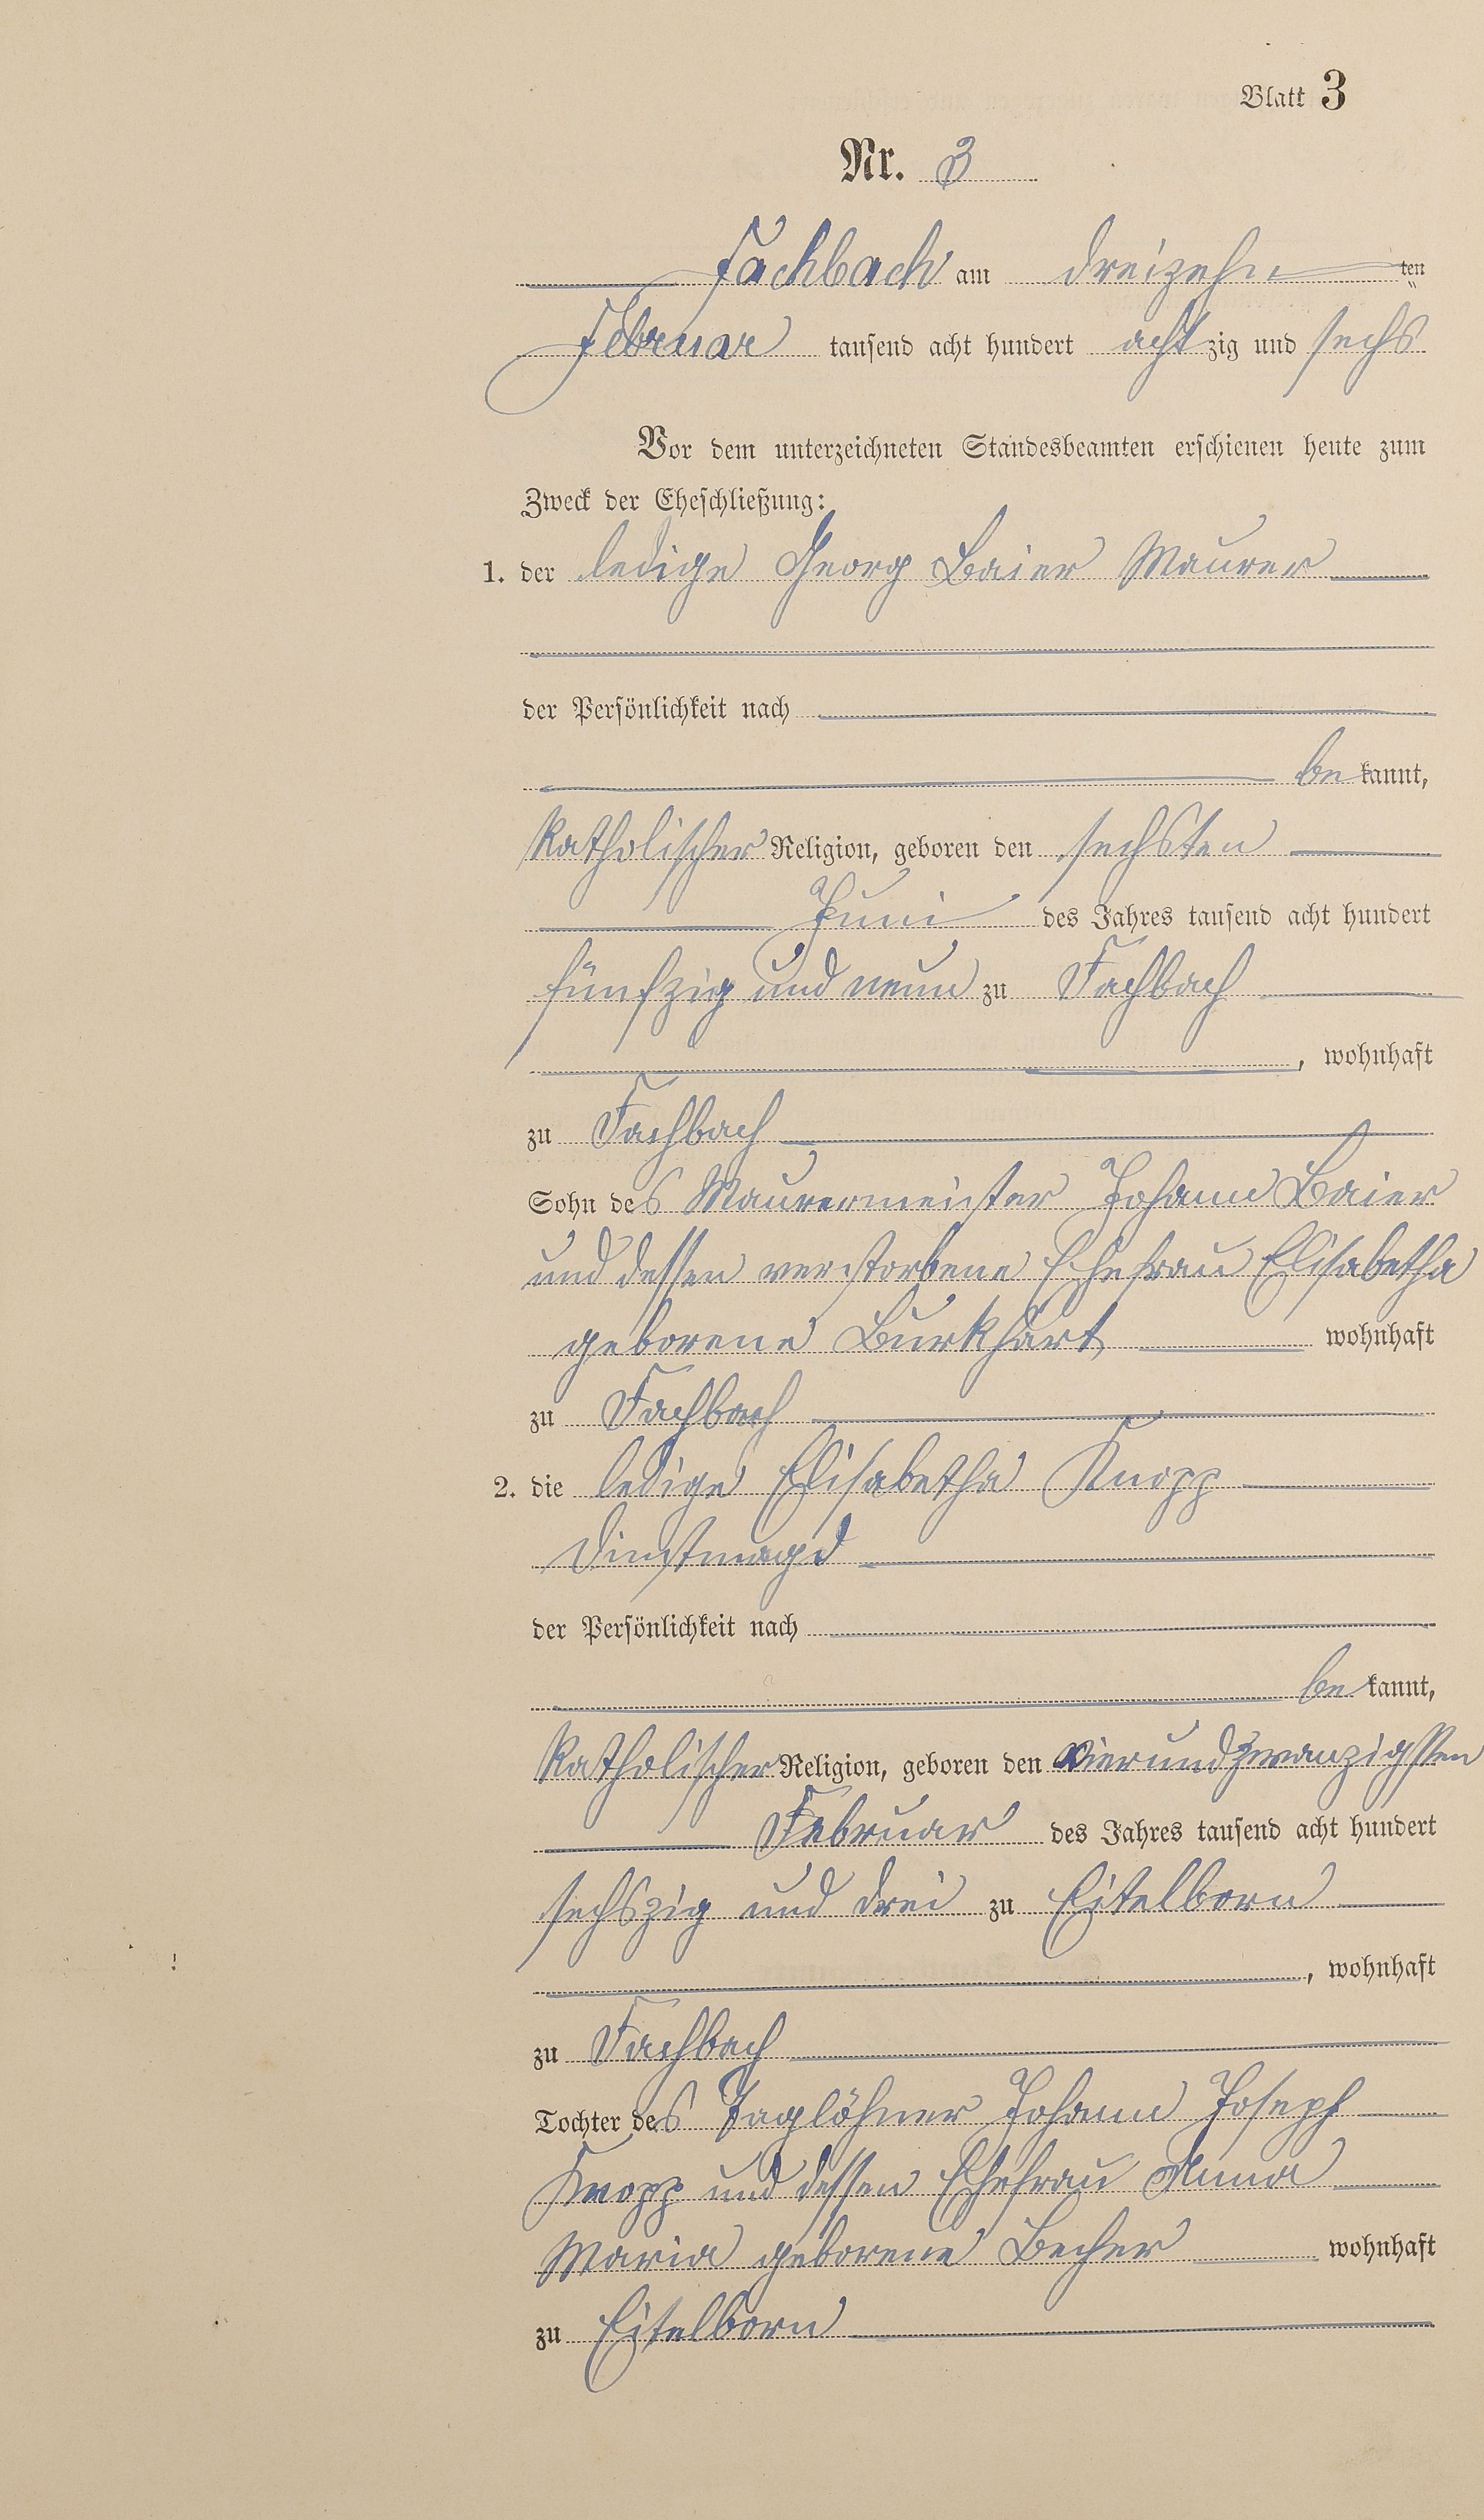 Blatt 3
Nr. 3
Fachbach am dreizehnten
Februar tausend acht hundert achtzig und sechs
Vor dem unterzeichneten Standesbeamten erschienen heute zum
Zweck der Eheschließung:
1. der ledige Georg Baier Maurer
der Persönlichkeit nach
bekannt,
katholischer Religion, geboren den sechsten
Juni des Jahres tausend acht hundert
fünfzig und neun zu Fachbach
, wohnhaft
zu Fachbach
Sohn des Maurermeister Johann Baier
und dessen verstorbene Ehefrau Elisabetha
geborene Burkhart wohnhaft
zu Fachbach
2. die ledige Elisabetha Knopp
Dienstmagd
der Persönlichkeit nach
bekannt,
katholischer Religion, geboren den vierundzwanzigsten
Februar des Jahres tausend acht hundert
sechszig und drei zu Eitelborn
, wohnhaft
zu Fachbach
Tochter des Taglöhner Johann Joseph
Knopp und dessen Ehefrau Anna
Maria geborene Becher wohnhaft
zu Eitelborn